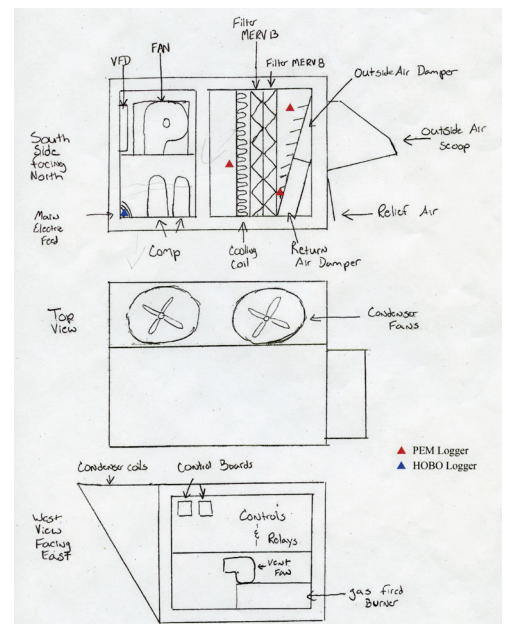 Filter
MERV 13
FAN
VFD
Filter MERV 8
Outside Air Damper
South
Side
facing
North
Outside Air
Scoop
Main
Electric
Feed
Relief Air
Comp
Cooling
Coil
Return
Air Damper
Top
View
Condenser
Fans
PEM Logger
HOBO Logger
Condenser coils
Control Boards
West
View
Facing
East
Controls
&
Relays
Vent
Fan
gas fired
Burner